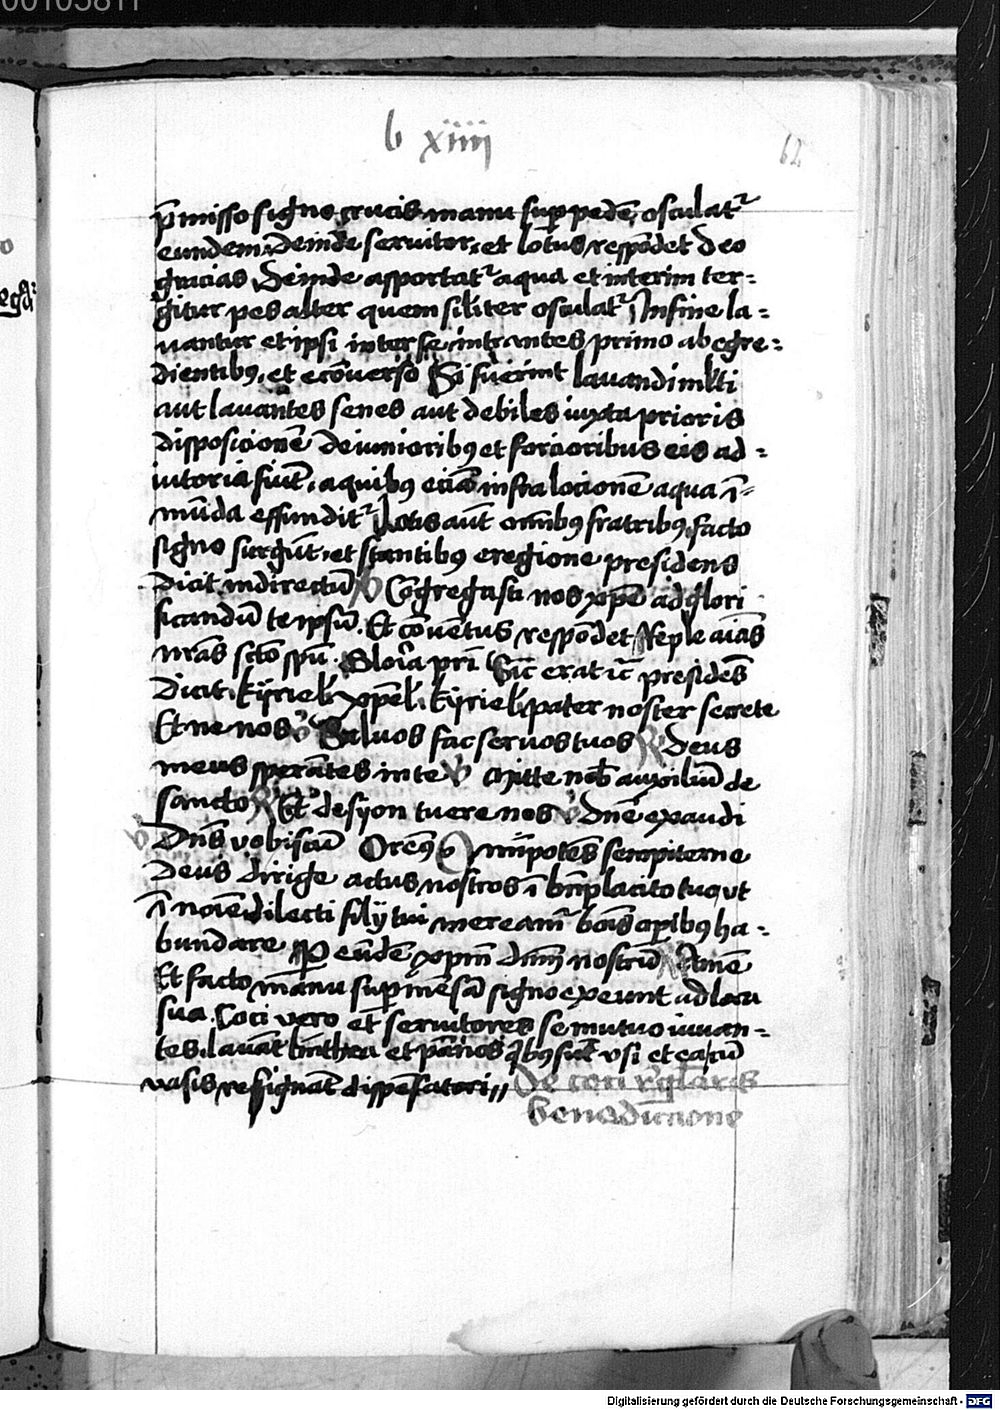 00105811
b xiiii
62
p̄misso signo crucis manu sup pedē osculat᷑
eundem. Deinde seruitor et lotus respōdet deo
gracias Deinde asportat᷑ aqua et interim ter=
gitur pes alter quem siliter osculat᷑ In fine la=
uantur et ipsi inter se intrantes primo ab egre=
dientibꝫ, et ecōuerso Si fuerint lauandi ml̄ti
aut lauantes senes aut debiles iuxta prioris
disposicionē de iunioribꝫ et forcioribus eis ad=
iutoria fiūt, a quibꝫ eciā infra locionē aqua ī=
mūda effundit᷑ Lotis aūt omībꝫ fratribꝫ, facto
signo surgūt, et stantibꝫ e regione presidens
dicit indirectū V̄ Congregasti nos xp̄e ad glori
ficandū te ipsū. Et cōuētus respōdet Reple aīas
nr̄as sc̄to sp̄u. Gloria pr̄i Sic̄ erat ic̄ presidēs
dicit. kyriel̄ xp̄el̄. kyriel̄ pater noster secrete
Et ne nos V̄ Saluos fac seruos tuos R̄ deus
meus sperātes in te V̄ Mitte nob̄ auxiliū de
sancto R̄ Et de syon tuere nos V̄ dn̄e exaudi
V̄ Dn̄s vobiscū Orem̄ꝫ Omīpotēs sempiterne
deus dirige actus nostros ī bn̄placito tuo vt
ī noīe dilecti filij tui meream᷑ bōis opibꝫ ha=
bundare P eūdē xp̄m dn̄m nostrū R̄ Amē
Et facto manu sup mēsā signo exeunt ad loca
sua. Coci vero et seruitores se mutuo iuuan=
tes. lauāt linthea et pānos q̄bꝫ sūt vsi et ea cū
vasis resignāt dispēsatori // De coci r̄gl̄aris
benedictione
Digitalisierung gefördert durch die Deutsche Forschungsgemeinschaft - DFG